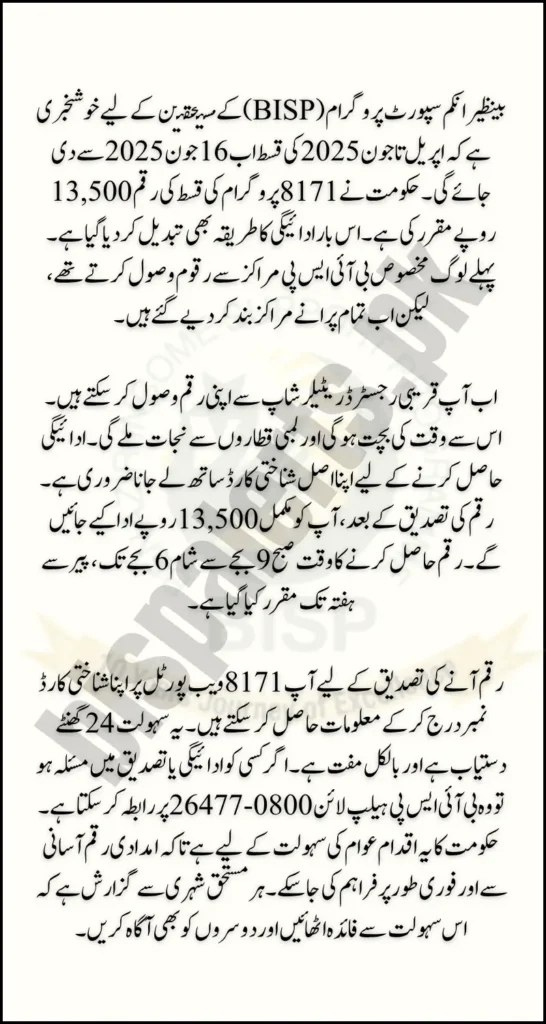 بینظیر انکم سپورٹ پروگرام (BISP) کے مستحقین کے لیے خوشخبری
ہے کہ اپریل تا جون 2025 کی قسط اب 16 جون 2025 سے دی
جائے گی۔ حکومت نے 8171 پروگرام کی قسط کی رقم 13,500
روپے مقرر کی ہے۔ اس بار ادائیگی کا طریقہ بھی تبدیل کر دیا گیا ہے۔
پہلے لوگ مخصوص بی آئی ایس پی مراکز سے رقوم وصول کرتے تھے،
لیکن اب تمام پرانے مراکز بند کر دیے گئے ہیں۔
اب آپ قریبی رجسٹرڈ ریٹیلر شاپ سے اپنی رقم وصول کر سکتے ہیں۔
اس سے وقت کی بچت ہوگی اور لمبی قطاروں سے نجات ملے گی۔ ادائیگی
حاصل کرنے کے لیے اپنا اصل شناختی کارڈ ساتھ لے جانا ضروری ہے۔
رقم کی تصدیق کے بعد، آپ کو مکمل 13,500 روپے ادا کیے جائیں
گے۔ رقم حاصل کرنے کا وقت صبح 9 بجے سے شام 6 بجے تک، پیر سے
ہفتہ تک مقرر کیا گیا ہے۔
رقم آنے کی تصدیق کے لیے آپ 8171 ویب پورٹل پر اپنا شناختی کارڈ
نمبر درج کر کے معلومات حاصل کر سکتے ہیں۔ یہ سہولت 24 گھنٹے
دستیاب ہے اور بالکل مفت ہے۔ اگر کسی کو ادائیگی یا تصدیق میں مسئلہ ہو
تو وہ بی آئی ایس پی ہیلپ لائن 0800-26477 پر رابطہ کر سکتا ہے۔
حکومت کا یہ اقدام عوام کی سہولت کے لیے ہے تاکہ امدادی رقم آسانی
سے اور فوری طور پر فراہم کی جا سکے۔ ہر مستحق شہری سے گزارش ہے کہ
اس سہولت سے فائدہ اٹھائیں اور دوسروں کو بھی آگاہ کریں۔
BISP